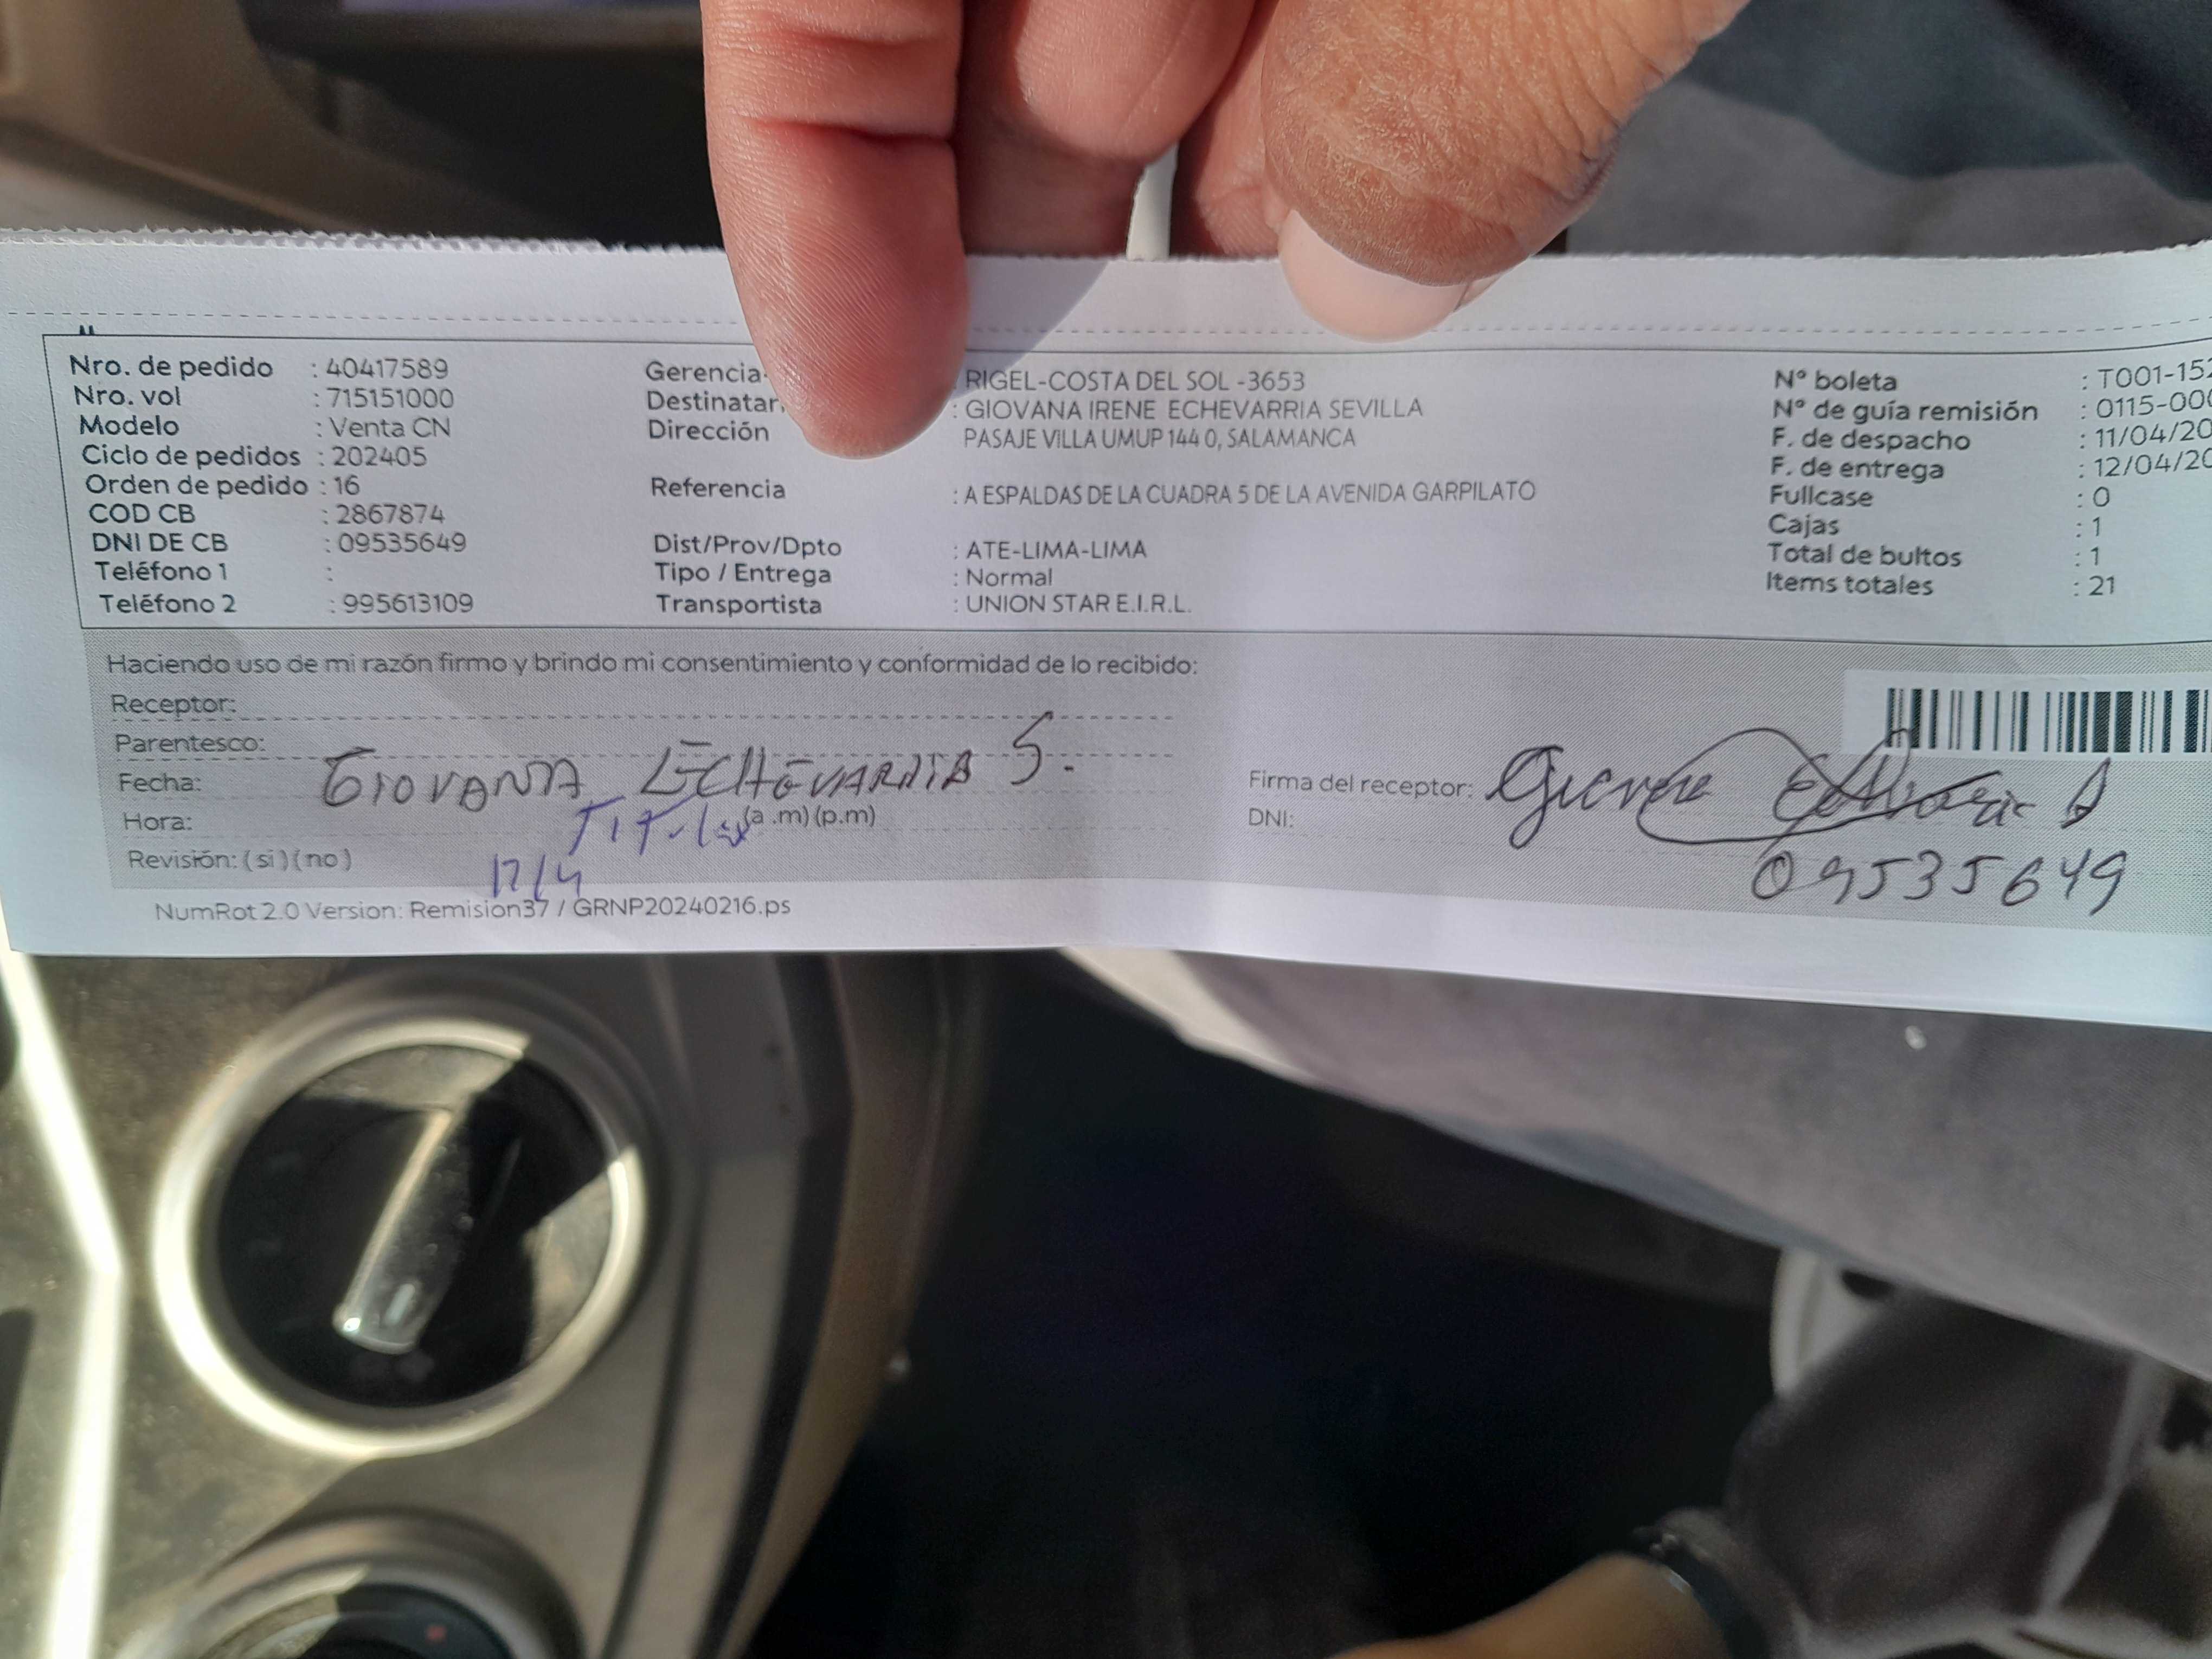 Nro. de pedido : 40417589
Nro. vol : 715151000
Modelo : Venta CN
Ciclo de pedidos : 202405
Orden de pedido : 16
COD CB : 2867874
DNI DE CB : 09535649
Teléfono 1 :
Teléfono 2 : 995613109
Gerencia : RIGEL-COSTA DEL SOL -3653
Destinatar : GIOVANA IRENE ECHEVARRIA SEVILLA
Dirección PASAJE VILLA UMUP 144 0, SALAMANCA
Referencia : A ESPALDAS DE LA CUADRA 5 DE LA AVENIDA GARPILATO
Dist/Prov/Dpto : ATE-LIMA-LIMA
Tipo / Entrega : Normal
Transportista : UNION STAR E.I.R.L.
Nº boleta : T001-152
Nº de guía remisión : 0115-000
F. de despacho : 11/04/20
F. de entrega : 12/04/20
Fullcase : 0
Cajas : 1
Total de bultos : 1
Items totales : 21
Haciendo uso de mi razón firmo y brindo mi consentimiento y conformidad de lo recibido:
Receptor:
Parentesco:
Fecha: GIOVANA ECHEVARRIA S.
Hora: Titular (a .m) (p.m)
Revisión: ( si ) ( no )
12/4
Firma del receptor:
DNI: 09535649
NumRot 2.0 Version: Remision37 / GRNP20240216.ps